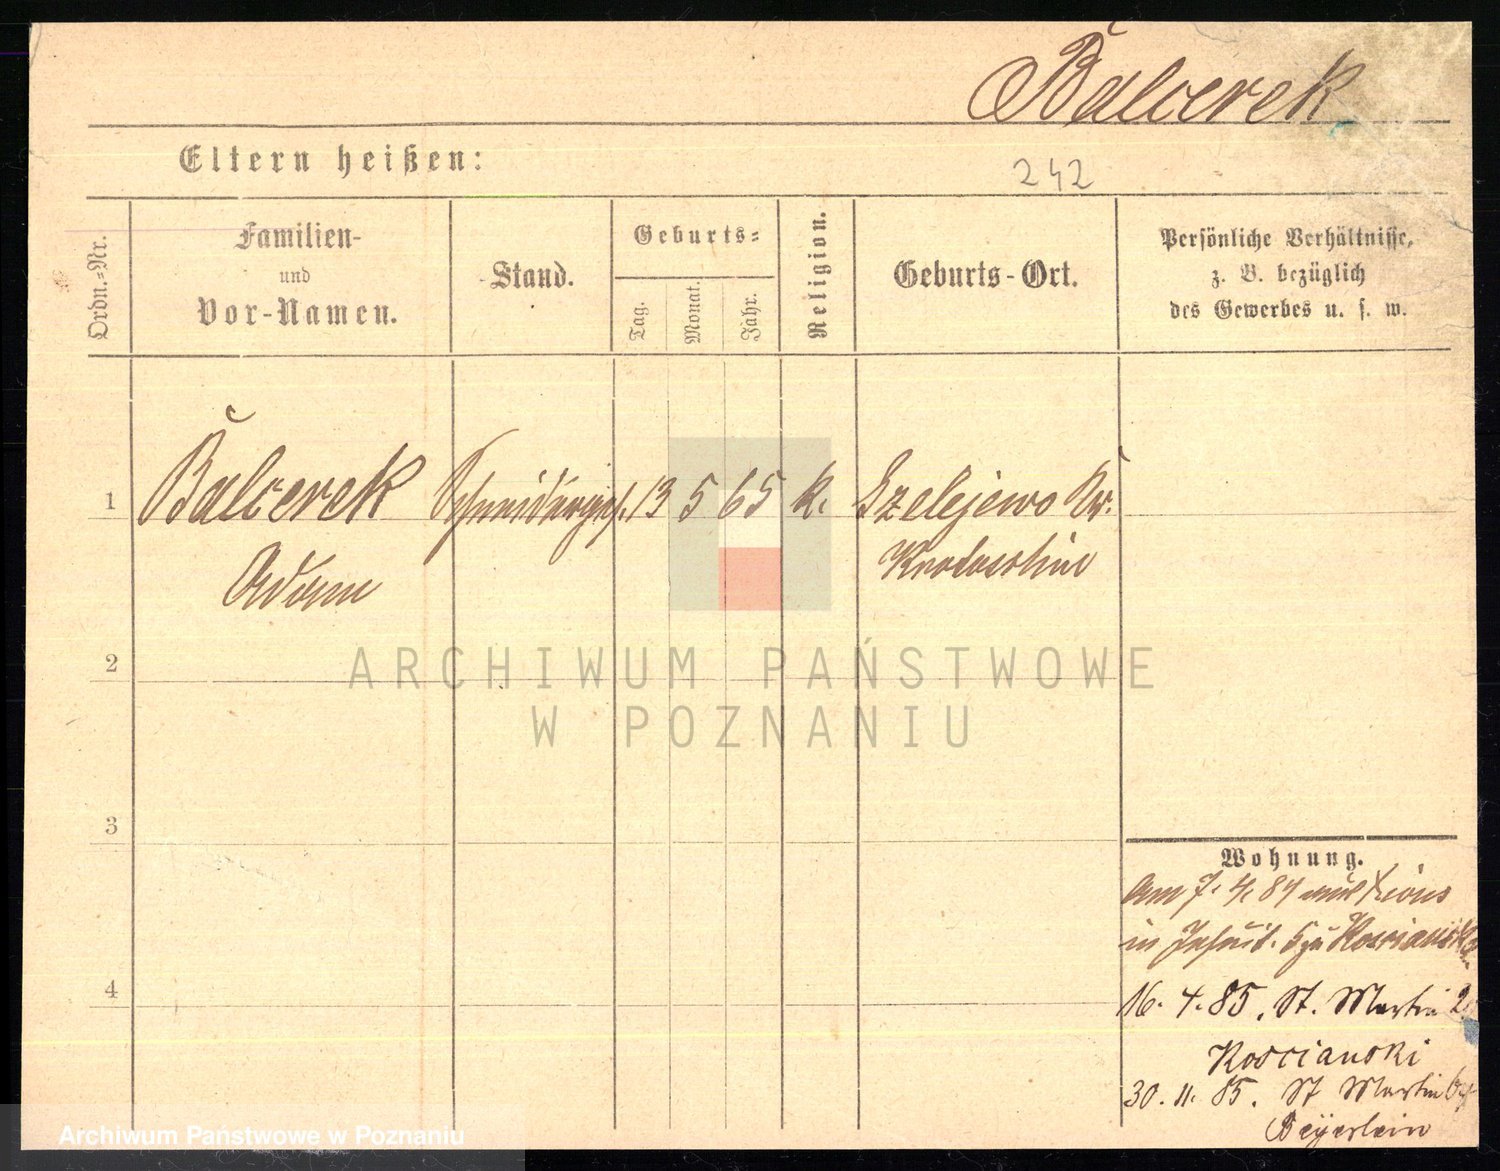 Balcerek
Eltern heißen:
242
Ordn.-Nr.
Familien-
und
Vor-Namen.
Stand.
Geburts-
Tag.
Monat.
Jahr.
Religion.
Geburts-Ort.
Persönliche Verhältnisse,
z. B. bezüglich
des Gewerbes u. s. w.
1
Balcerek
Adam
Schneiderges.
13
5
65
k.
Szelejewo Kr.
Krotoschin
2
3
4
ARCHIWUM PAŃSTWOWE
W POZNANIU
Wohnung.
am 7. 4. 84 aus Xions
in Jesuit. 5 zu Koscianski
16. 4. 85. St. Martin
Koscianski
30. 11. 85. St Martin
Beyerlein
Archiwum Państwowe w Poznaniu